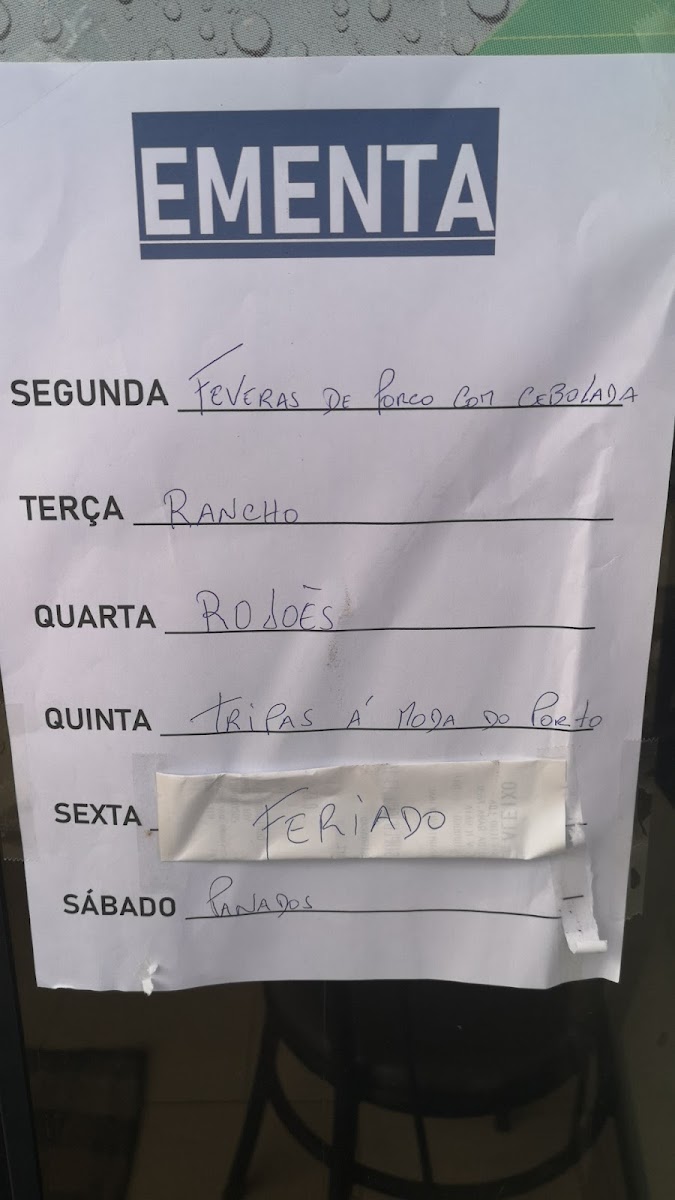 EMENTA
SEGUNDA FEVERAS DE PORCO COM CEBOLADA
TERÇA RANCHO
QUARTA ROJOÊS
QUINTA TRIPAS Á MODA DO PORTO
SEXTA FERIADO
SÁBADO PANADOS